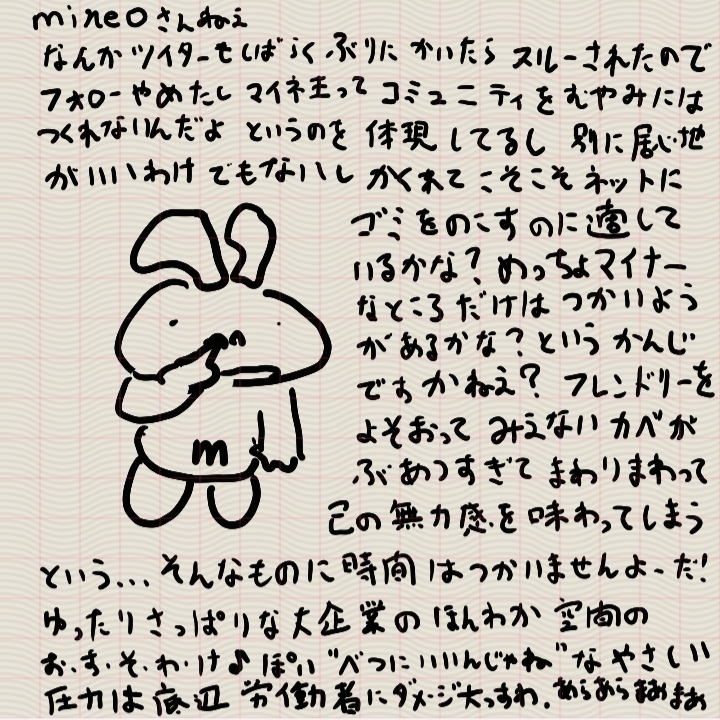 mineoさんねえ
なんかツイターもしばらくぶりにかいたらスルーされたので
フォローやめたし マイネ王って コミュニティをむやみには
つくれないんだよ というのを 体現してるし 別に居心地
がいいわけでもないし かくれてこそこそネットに
ゴミをのこすのに適して
いるかな？めっちょマイナー
なところだけはつかいよう
があるかな？というかんじ
ですかねえ？フレンドリーを
よそおって みえないカベが
ぶあつすぎて まわりまわって
己の無力感を味わってしまう
m
という...そんなものに時間はつかいませんよーだ!
ゆったりさっぱりな大企業のほんわか空間の
お・す・そ・わ・け♪ぽい"べつにいいんじゃね"な やさしい
圧力は底辺労働者にダメージ大っすわ.あらあらまあまあ